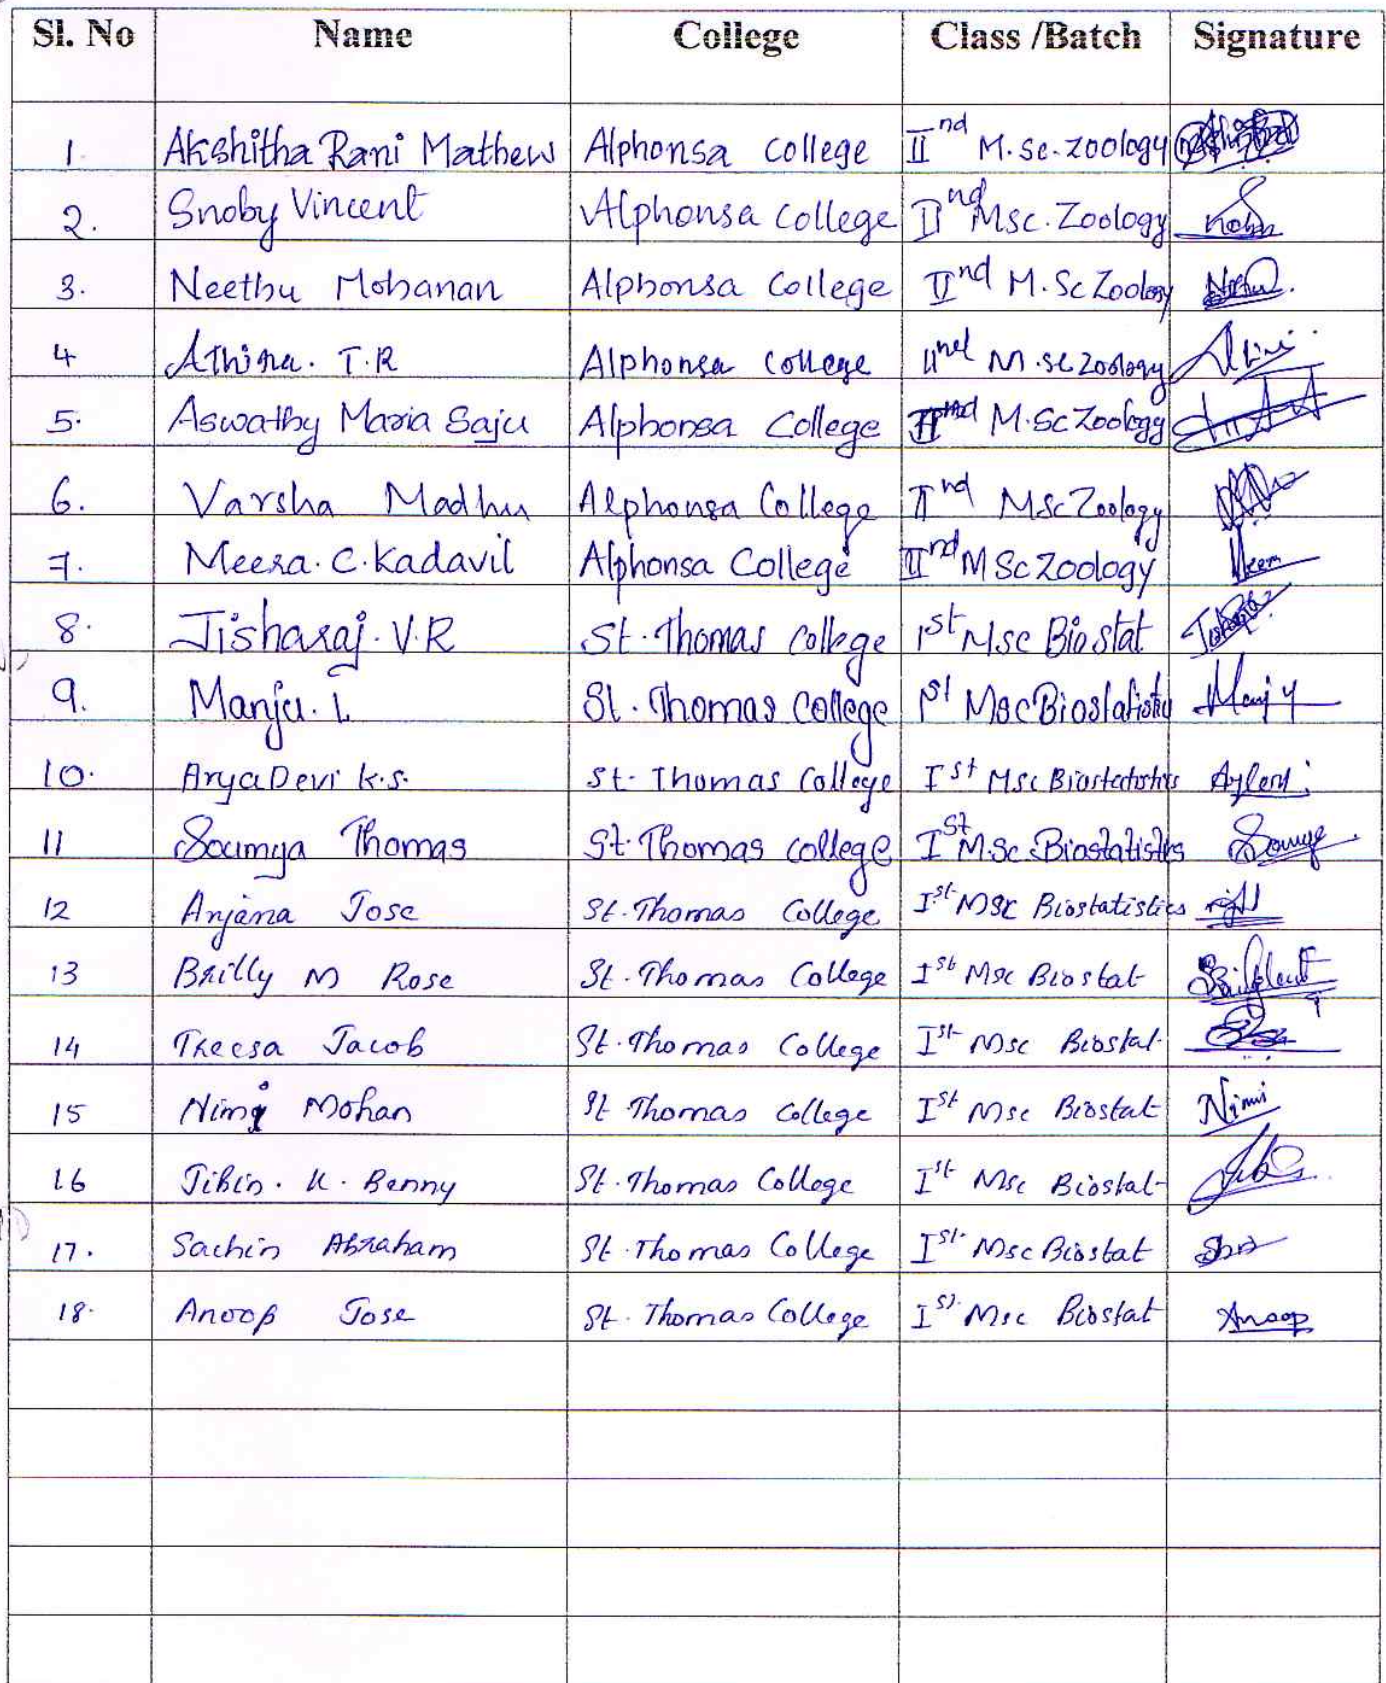 Sl. No Name College Class /Batch Signature
1. Akshitha Rani Mathew Alphonsa College II nd M.Sc. Zoology
2. Snoby Vincent Alphonsa College II nd Msc. Zoology
3. Neethu Mohanan Alphonsa College II nd M.Sc Zoology
4 Athira. T.R Alphonsa College II nd M.Sc Zoology
5. Aswathy Maria Saju Alphonsa College II nd M.Sc Zoology
6. Varsha Madhu Alphonsa College II nd MSc Zoology
7. Meera. C. Kadavil Alphonsa College II nd MSc Zoology Meera
8. Jisharaj. V.R St. Thomas College 1st Msc Biostat
9. Manju. L St. Thomas College 1st Msc Biostatistics Manju
10. Arya Devi k.s. St. Thomas College I st Msc Biostatistics
11 Soumya Thomas St. Thomas College I st M.Sc. Biostatistics Soumya
12 Anjana Jose St. Thomas College I st MSc Biostatistics
13 Brilly M Rose St. Thomas College I st Msc Biostat
14 Theesa Jacob St. Thomas College I st Msc Biostat.
15 Nimi Mohan St Thomas College I st Msc Biostat Nimi
16 Jibin. K. Benny St. Thomas College I st Msc Biostat
17. Sachin Abraham St. Thomas College I st. Msc Biostat
18. Anoop Jose St. Thomas College I st. Msc Biostat Anoop